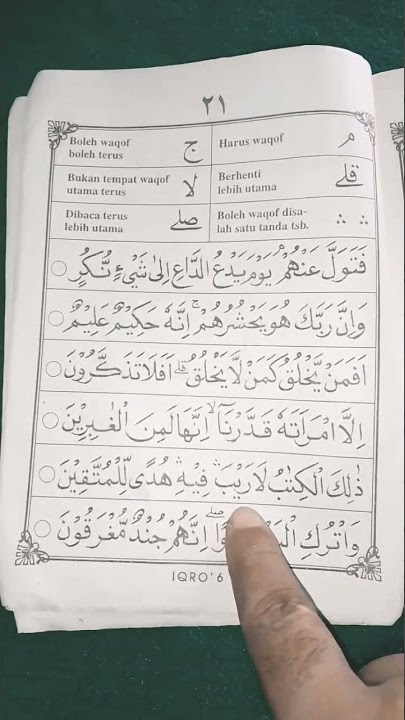 ٢١
Boleh waqof
boleh terus
ج
Harus waqof
م
Bukan tempat waqof
utama terus
لا
Berhenti
lebih utama
قلے
Dibaca terus
lebih utama
صلے
Boleh waqof disa-
lah satu tanda tsb.
∴ ∴
فَتَوَلَّ عَنْهُمْ ۘ يَوْمَ يَدْعُ الدَّاعِ اِلٰى شَيْءٍ نُّكُرٍ
وَاِنَّ رَبَّكَ هُوَ يَحْشُرُهُمْ ۚ اِنَّهٗ حَكِيْمٌ عَلِيْمٌ
اَفَمَنْ يَّخْلُقُ كَمَنْ لَّا يَخْلُقُ ۗ اَفَلَا تَذَكَّرُوْنَ
اِلَّا امْرَاَتَهٗ قَدَّرْنَآ ۙ اِنَّهَا لَمِنَ الْغٰبِرِيْنَ
ذٰلِكَ الْكِتٰبُ لَا رَيْبَ ۛ فِيْهِ ۛ هُدًى لِّلْمُتَّقِيْنَ
وَاتْرُكِ اِنَّهُمْ جُنْدٌ مُّغْرَقُوْنَ
IQRO' 6